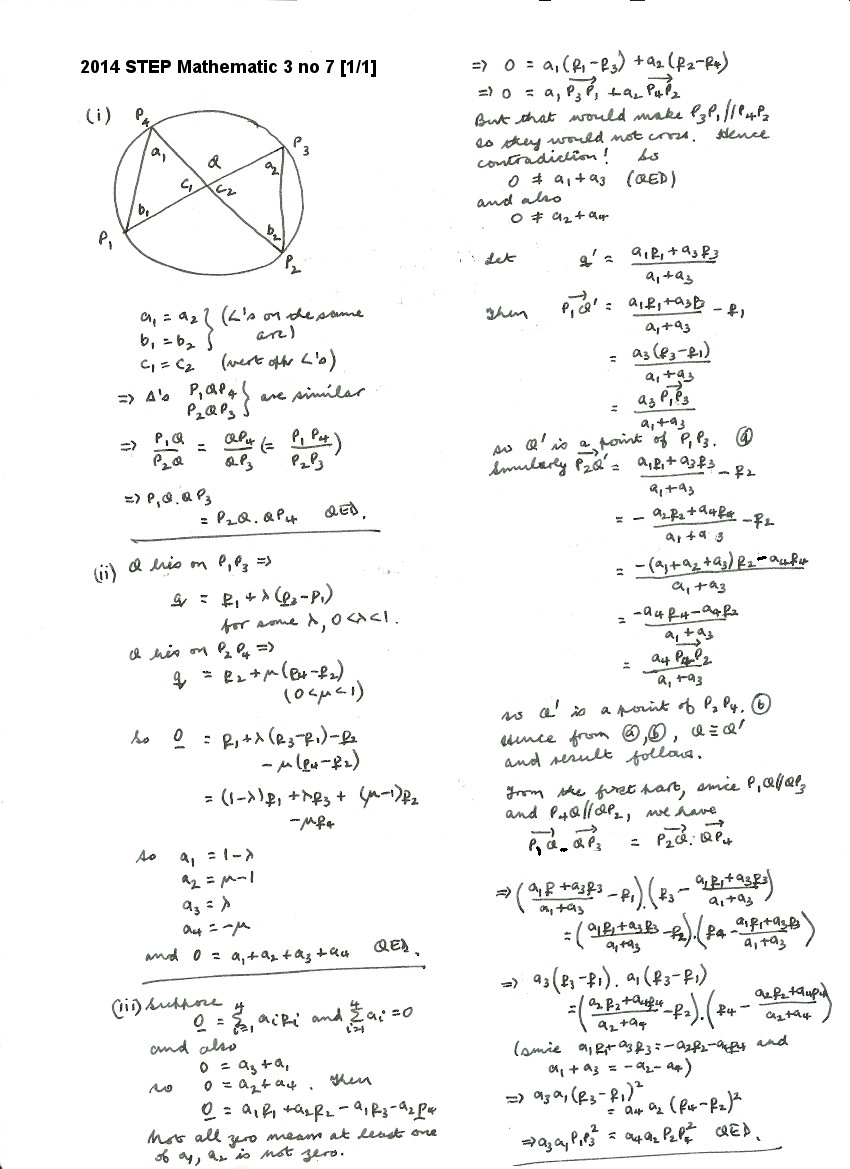 2014 STEP Mathematic 3 no 7 [1/1]
(i)
P₄
P₃
a₁
Q
a₂
c₁
c₂
b₁
b₂
P₁
P₂
a₁ = a₂ } (∠'s on the same
b₁ = b₂ } arc)
c₁ = c₂ (vert opp ∠'s)
⇒ Δ's P₁QP₄ } are similar
P₂QP₃ }
⇒ P₁Q/P₂Q = QP₄/QP₃ (= P₁P₄/P₂P₃)
⇒ P₁Q.QP₃
= P₂Q.QP₄ QED.
(ii) Q lies on P₁P₃ ⇒
q = p₁ + λ(p₃-p₁)
for some λ, 0<λ<1.
Q lies on P₂P₄ ⇒
q = p₂ + μ(p₄-p₂)
(0<μ<1)
So 0 = p₁ + λ(p₃-p₁) - p₂
- μ(p₄-p₂)
= (1-λ)p₁ + λp₃ + (μ-1)p₂
- μp₄
so a₁ = 1-λ
a₂ = μ-1
a₃ = λ
a₄ = -μ
and 0 = a₁+a₂+a₃+a₄ QED.
(iii) Suppose
0 = Σ⁴ᵢ₌₁ aᵢpᵢ and Σ⁴ᵢ₌₁ aᵢ = 0
and also
0 = a₃+a₁
so 0 = a₂+a₄. Then
0 = a₁p₁ + a₂p₂ - a₁p₃ - a₂p₄
Not all zero means at least one
of a₁, a₂ is not zero.
⇒ 0 = a₁(p₁-p₃) + a₂(p₂-p₄)
⇒ 0 = a₁P₃P₁ + a₂P₄P₂
But that would make P₃P₁//P₄P₂
so they would not cross. Hence
contradiction! So
0 ≠ a₁+a₃ (QED)
and also
0 ≠ a₂+a₄
Let q' = (a₁p₁+a₃p₃)/(a₁+a₃)
Then P₁Q' = (a₁p₁+a₃p₃)/(a₁+a₃) - p₁
= a₃(p₃-p₁)/(a₁+a₃)
= a₃P₁P₃/(a₁+a₃)
so Q' is a point of P₁P₃. ⓐ
Similarly P₂Q' = (a₁p₁+a₃p₃)/(a₁+a₃) - p₂
= - (a₂p₂+a₄p₄)/(a₁+a₃) - p₂
= (-(a₁+a₂+a₃)p₂ - a₄p₄)/(a₁+a₃)
= (-a₄p₄-a₄p₂)/(a₁+a₃)
= a₄P₄P₂/(a₁+a₃)
so Q' is a point of P₂P₄. ⓑ
Hence from ⓐ, ⓑ, Q ≡ Q'
and result follows.
From the first part, since P₁Q//QP₃
and P₄Q//QP₂, we have
P₁Q.QP₃ = P₂Q.QP₄
⇒ ((a₁p+a₃p₃)/(a₁+a₃) - p₁).(p₃ - (a₁p₁+a₃p₃)/(a₁+a₃))
= ((a₁p₁+a₃p₃)/(a₁+a₃) - p₂).(p₄ - (a₁p₁+a₃p₃)/(a₁+a₃))
⇒ a₃(p₃-p₁).a₁(p₃-p₁)
= ((a₂p₂+a₄p₄)/(a₂+a₄) - p₂).(p₄ - (a₂p₂+a₄p₄)/(a₂+a₄))
(since a₁p₁+a₃p₃ = -a₂p₂-a₄p₄ and
a₁+a₃ = -a₂-a₄)
⇒ a₃a₁(p₃-p₁)²
= a₄a₂(p₄-p₂)²
⇒ a₃a₁P₁P₃² = a₄a₂P₂P₄² QED.